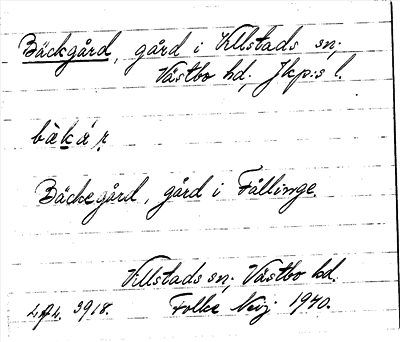 Bäckgård, gård i Villstads sn;
Västbo hd; Jkp:s l.
Bäckegård, gård i Fållinge.
Villstads sn; Västbo hd.
3918. Folke Neij 1940.